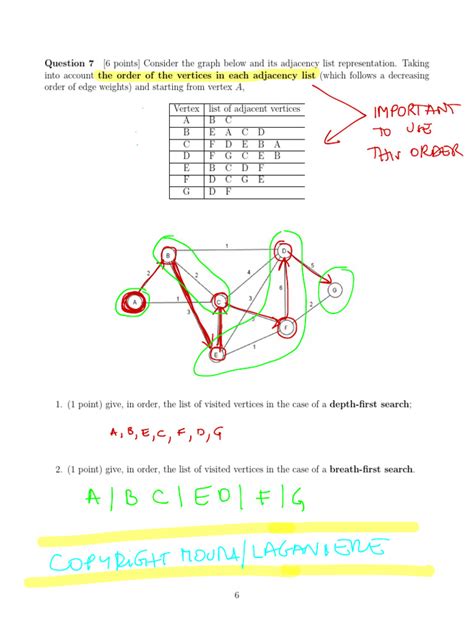 Question 7 [6 points] Consider the graph below and its adjacency list representation. Taking
into account the order of the vertices in each adjacency list (which follows a decreasing
order of edge weights) and starting from vertex A,
Vertex list of adjacent vertices
A B C
B E A C D
C F D E B A
D F G C E B
E B C D F
F D C G E
G D F
IMPORTANT
TO USE
THIS ORDER
1
B
D
2
2
4
5
A
1
C
3
6
G
3
2
F
E
1
1. (1 point) give, in order, the list of visited vertices in the case of a depth-first search;
A, B, E, C, F, D, G
2. (1 point) give, in order, the list of visited vertices in the case of a breath-first search.
A | B C | E D | F | G
COPYRIGHT MOURA/LAGANIERE
6